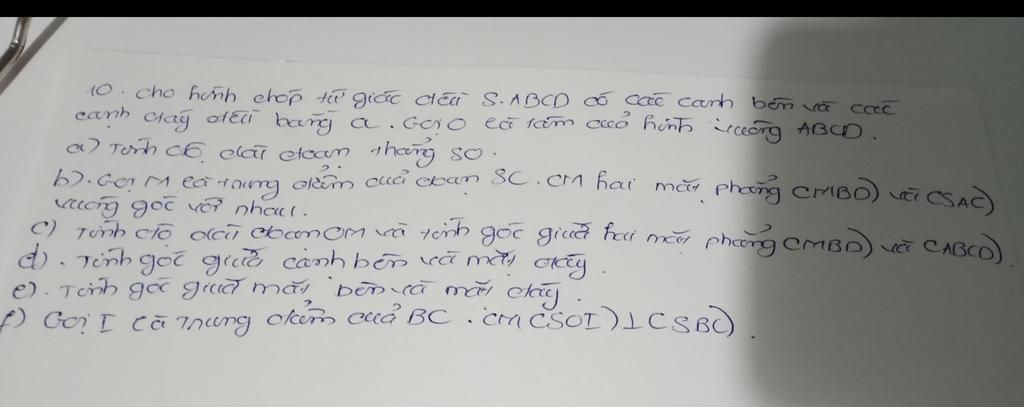 10. cho hình chóp tứ giác đều S.ABCD có các cạnh bên và các
cạnh đáy đều bằng a. Gọi O là tâm của hình vuông ABCD.
a) Tính độ dài đoạn thẳng SO.
b). Gọi M là trung điểm của đoạn SC. CM hai mặt phẳng (MBD) và (SAC)
vuông góc với nhau.
c) Tính độ dài đoạn OM và tính góc giữa hai mặt phẳng (MBD) và (ABCD).
d). Tính góc giữa cạnh bên và mặt đáy.
e). Tính góc giữa mặt bên và mặt đáy.
f) Gọi I là trung điểm của BC. CM (SOI) ⊥ (SBC).